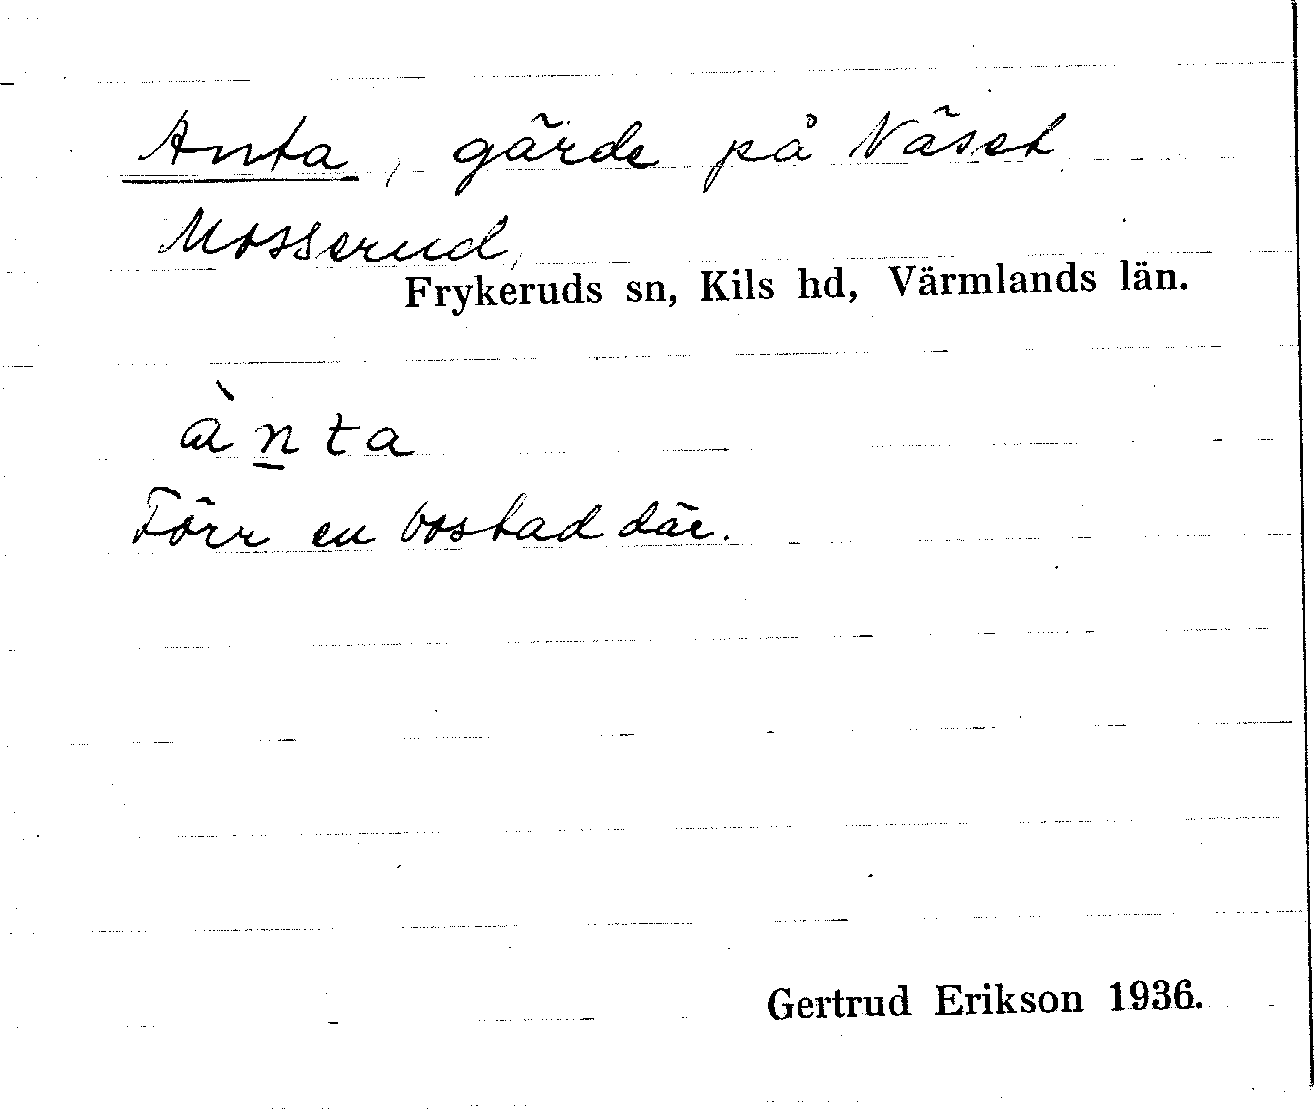 Anta, gärde på Näset
Mosserud,
Frykeruds sn, Kils hd, Värmlands län.
ànta
Förr en bostad där.
Gertrud Erikson 1936.